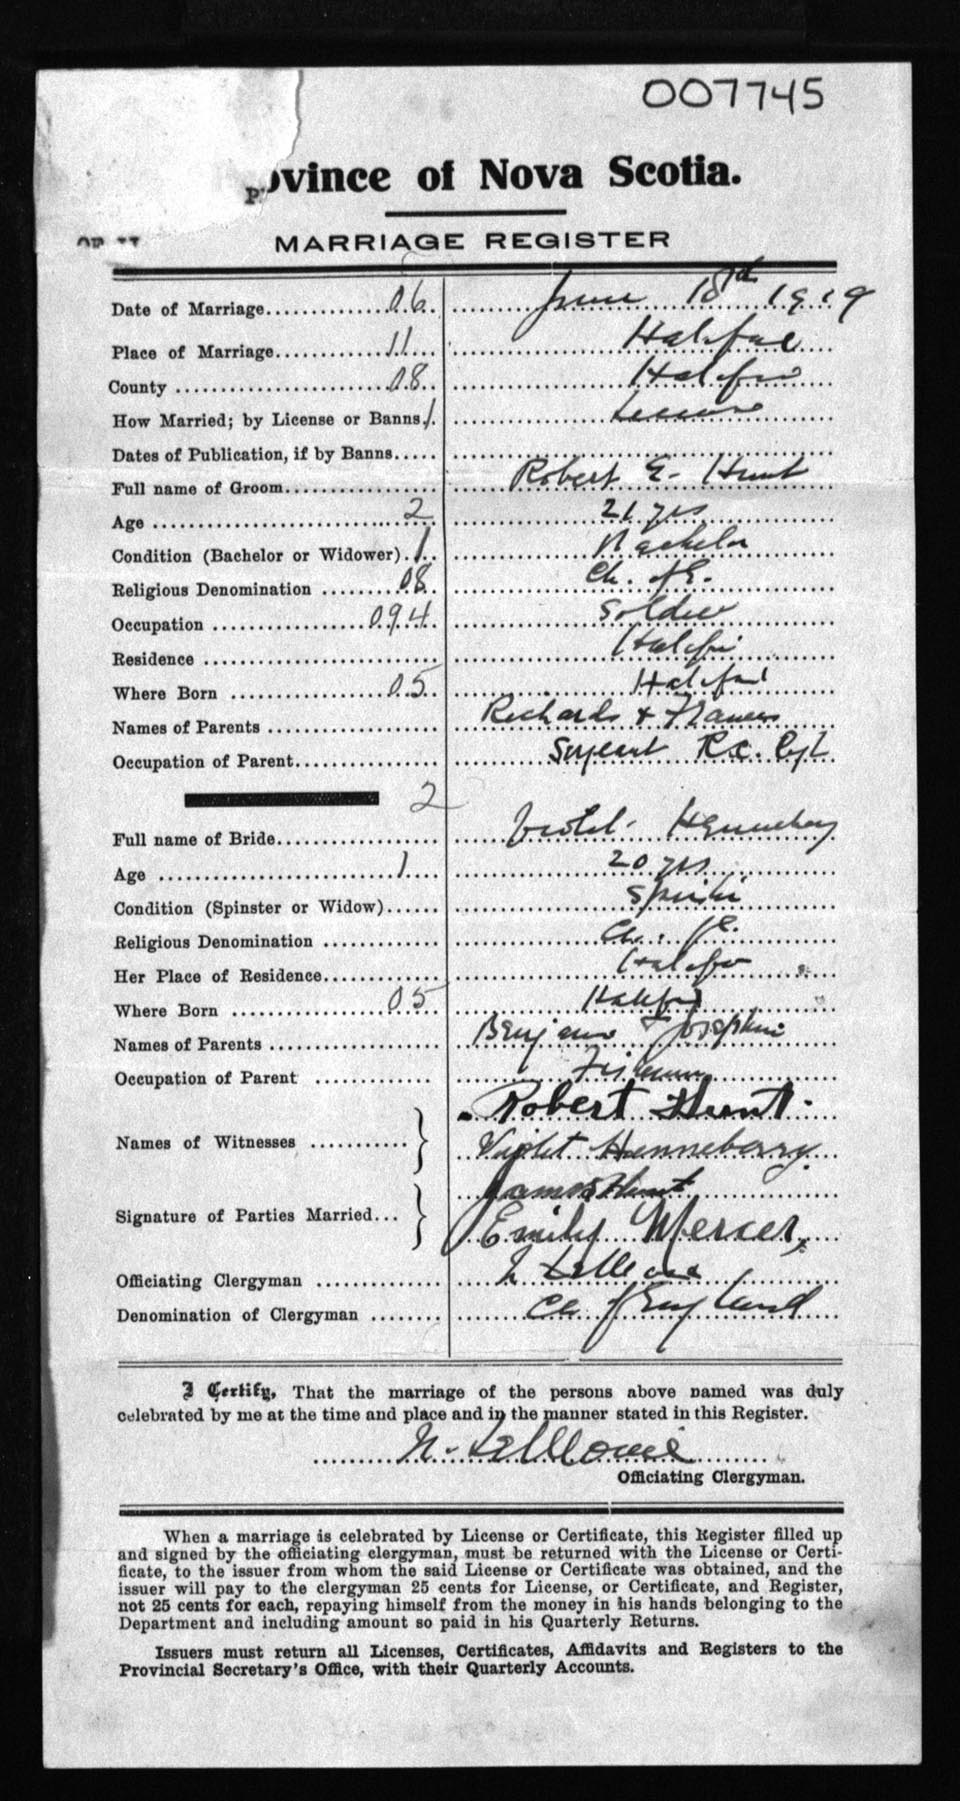 007745
Province of Nova Scotia.
MARRIAGE REGISTER
Date of Marriage 06 June 18th 1919
Place of Marriage 11 Halifax
County 08 Halifax
How Married; by License or Banns 1 License
Dates of Publication, if by Banns
Full name of Groom Robert E. Hunt
Age 2 21 yrs
Condition (Bachelor or Widower) 1 Bachelor
Religious Denomination 08 Ch. of E.
Occupation 094 Soldier
Residence Halifax
Where Born 05 Halifax
Names of Parents Richard & Frances
Occupation of Parent Sergeant R.C.
2
Full name of Bride Violet Henneberry
Age 1 20 yrs
Condition (Spinster or Widow) Spinster
Religious Denomination Ch. of E.
Her Place of Residence Halifax
Where Born 05 Halifax
Names of Parents Benjamin & Josephine
Occupation of Parent Fisherman
Robert Hunt.
Names of Witnesses
Violet Henneberry
James Hunt
Signature of Parties Married
Emily Mercer
Officiating Clergyman
Denomination of Clergyman Ch of England
I Certify, That the marriage of the persons above named was duly
celebrated by me at the time and place and in the manner stated in this Register.
Officiating Clergyman.
When a marriage is celebrated by License or Certificate, this Register filled up
and signed by the officiating clergyman, must be returned with the License or Certi-
ficate, to the issuer from whom the said License or Certificate was obtained, and the
issuer will pay to the clergyman 25 cents for License, or Certificate, and Register,
not 25 cents for each, repaying himself from the money in his hands belonging to the
Department and including amount so paid in his Quarterly Returns.
Issuers must return all Licenses, Certificates, Affidavits and Registers to the
Provincial Secretary's Office, with their Quarterly Accounts.